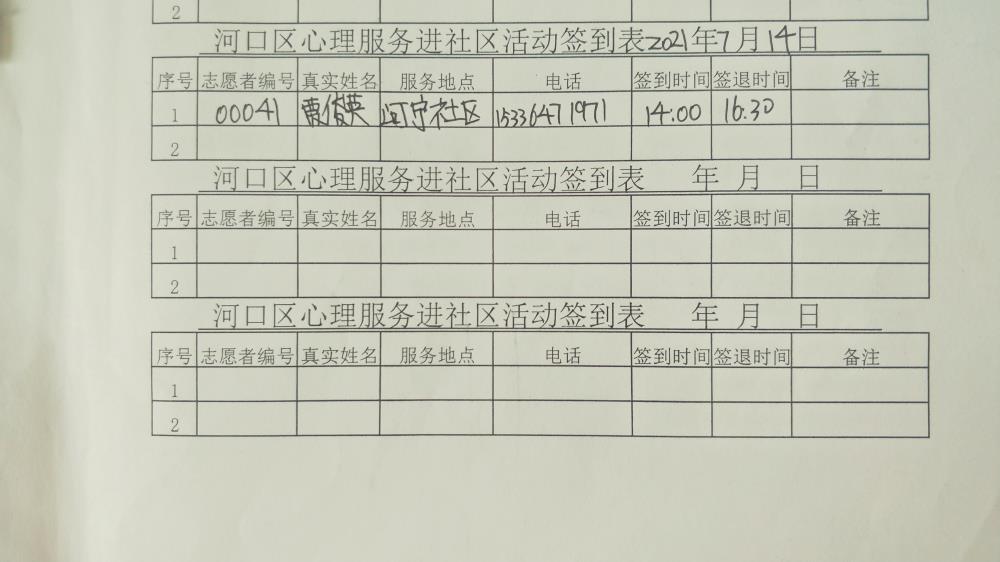 2
河口区心理服务进社区活动签到表2021年7月14日
序号 志愿者编号 真实姓名 服务地点 电话 签到时间 签退时间 备注
1 00041 曹俊英 河宁社区 15336471971 14.00 16.30
2
河口区心理服务进社区活动签到表 年 月 日
序号 志愿者编号 真实姓名 服务地点 电话 签到时间 签退时间 备注
1
2
河口区心理服务进社区活动签到表 年 月 日
序号 志愿者编号 真实姓名 服务地点 电话 签到时间 签退时间 备注
1
2